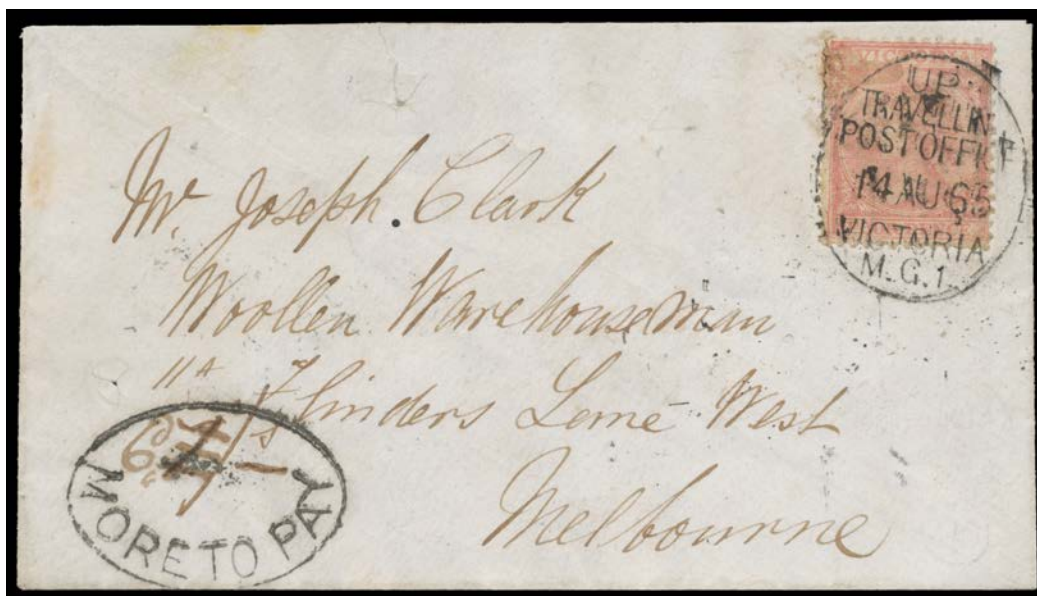 UP
TRAVELLIN
POST OFFICE
14 AU 65
VICTORIA
M.G.1.
Mr. Joseph Clark
Woollen Warehouseman
11A Flinders Lane West
Melbourne
6d
MORE TO PAY